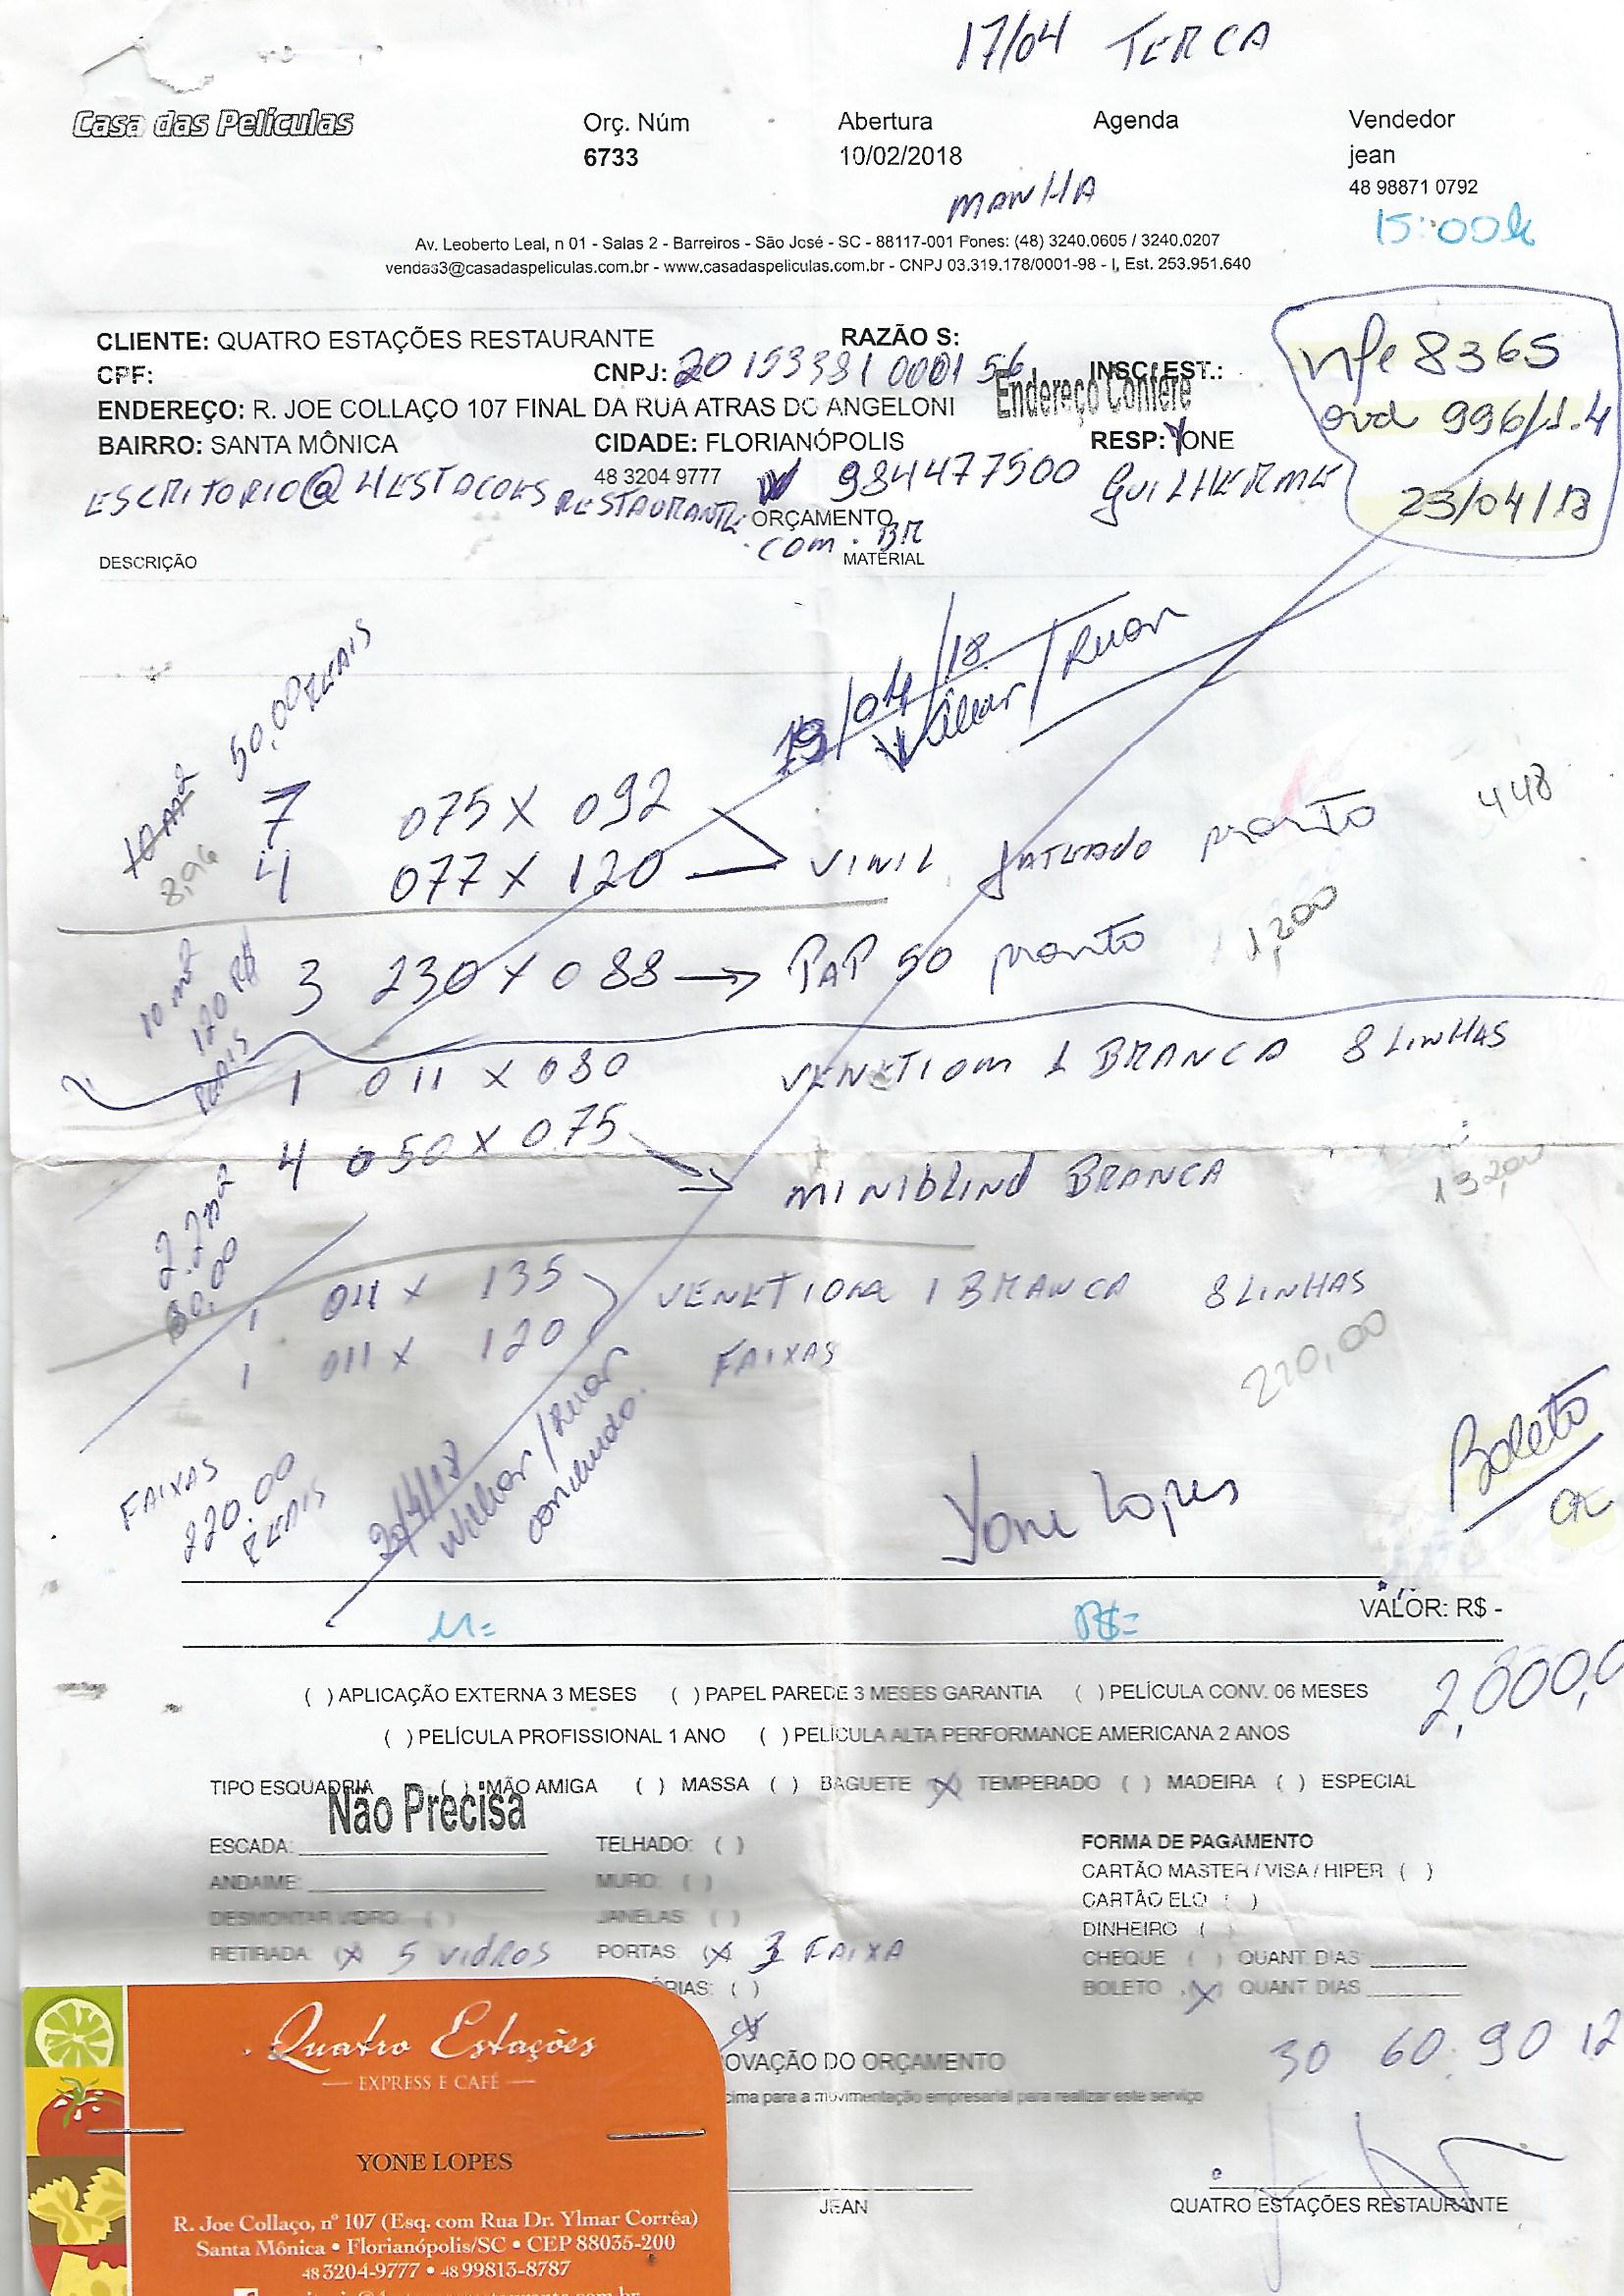 17/04 TERCA
Casa das Películas
Orç. Núm
6733
Abertura
10/02/2018
Agenda
Vendedor
jean
48 98871 0792
MANHA
15:00h
Av. Leoberto Leal, n 01 - Salas 2 - Barreiros - São José - SC - 88117-001 Fones: (48) 3240.0605 / 3240.0207
vendas3@casadaspeliculas.com.br - www.casadaspeliculas.com.br - CNPJ 03.319.178/0001-98 - I, Est. 253.951.640
CLIENTE: QUATRO ESTAÇÕES RESTAURANTE RAZÃO S:
CPF: CNPJ: 20153381 0001 56 INSC.EST.:
Endereço Confere
ENDEREÇO: R. JOE COLLAÇO 107 FINAL DA RUA ATRAS DO ANGELONI
BAIRRO: SANTA MÔNICA CIDADE: FLORIANÓPOLIS RESP: YONE
nfe 8365
ord 996/1.4
23/04/18
48 3204 9777 984477500 GUILHERME
ESCRITORIO@4ESTACOES RESTAURANTE
.COM.BR
ORÇAMENTO
DESCRIÇÃO MATERIAL
19/04/18
/ Ruan
50,00 REAIS
10 m²
8,96
7 075 X 092
4 077 X 120 VINIL JATEADO pronto
448
10 m²
120 R$
REAIS
3 230 X 088 → PAP 50 pronto
1,200
1 011 X 080 VENETIAN 1 BRANCA 8 LINHAS
4 050 X 075 → MINIBLIND BRANCA
2.2 m²
60,00
132,00
1 011 X 135 VENETIAN 1 BRANCA 8 LINHAS
1 011 X 120 FAIXAS
220,00
FAIXAS
220.00
REAIS
20/4/18
Willian / Ruan
concluido.
Yone Lopes
Boleto
OK
M= R$=
VALOR: R$ -
2,000,0
( ) APLICAÇÃO EXTERNA 3 MESES ( ) PAPEL PAREDE 3 MESES GARANTIA ( ) PELÍCULA CONV. 06 MESES
( ) PELÍCULA PROFISSIONAL 1 ANO ( ) PELÍCULA ALTA PERFORMANCE AMERICANA 2 ANOS
TIPO ESQUADRIA ( ) MÃO AMIGA ( ) MASSA ( ) BAGUETE (X) TEMPERADO ( ) MADEIRA ( ) ESPECIAL
Não Precisa
ESCADA: TELHADO: ( ) FORMA DE PAGAMENTO
ANDAIME: MURO: ( ) CARTÃO MASTER / VISA / HIPER ( )
DESMONTAR VIDRO: ( ) JANELAS: ( ) CARTÃO ELO ( )
DINHEIRO ( )
RETIRADA: (X 5 VIDROS PORTAS: (X 3 FAIXA CHEQUE ( ) QUANT. DIAS
ÓRIAS: ( ) BOLETO (X) QUANT. DIAS
30 60. 90 12
OVAÇÃO DO ORÇAMENTO
cima para a movimentação empresarial para realizar este serviço
JEAN QUATRO ESTAÇÕES RESTAURANTE
Quatro Estações
EXPRESS E CAFÉ
YONE LOPES
R. Joe Collaço, nº 107 (Esq. com Rua Dr. Ylmar Corrêa)
Santa Mônica • Florianópolis/SC • CEP 88035-200
48 3204-9777 • 48 99813-8787